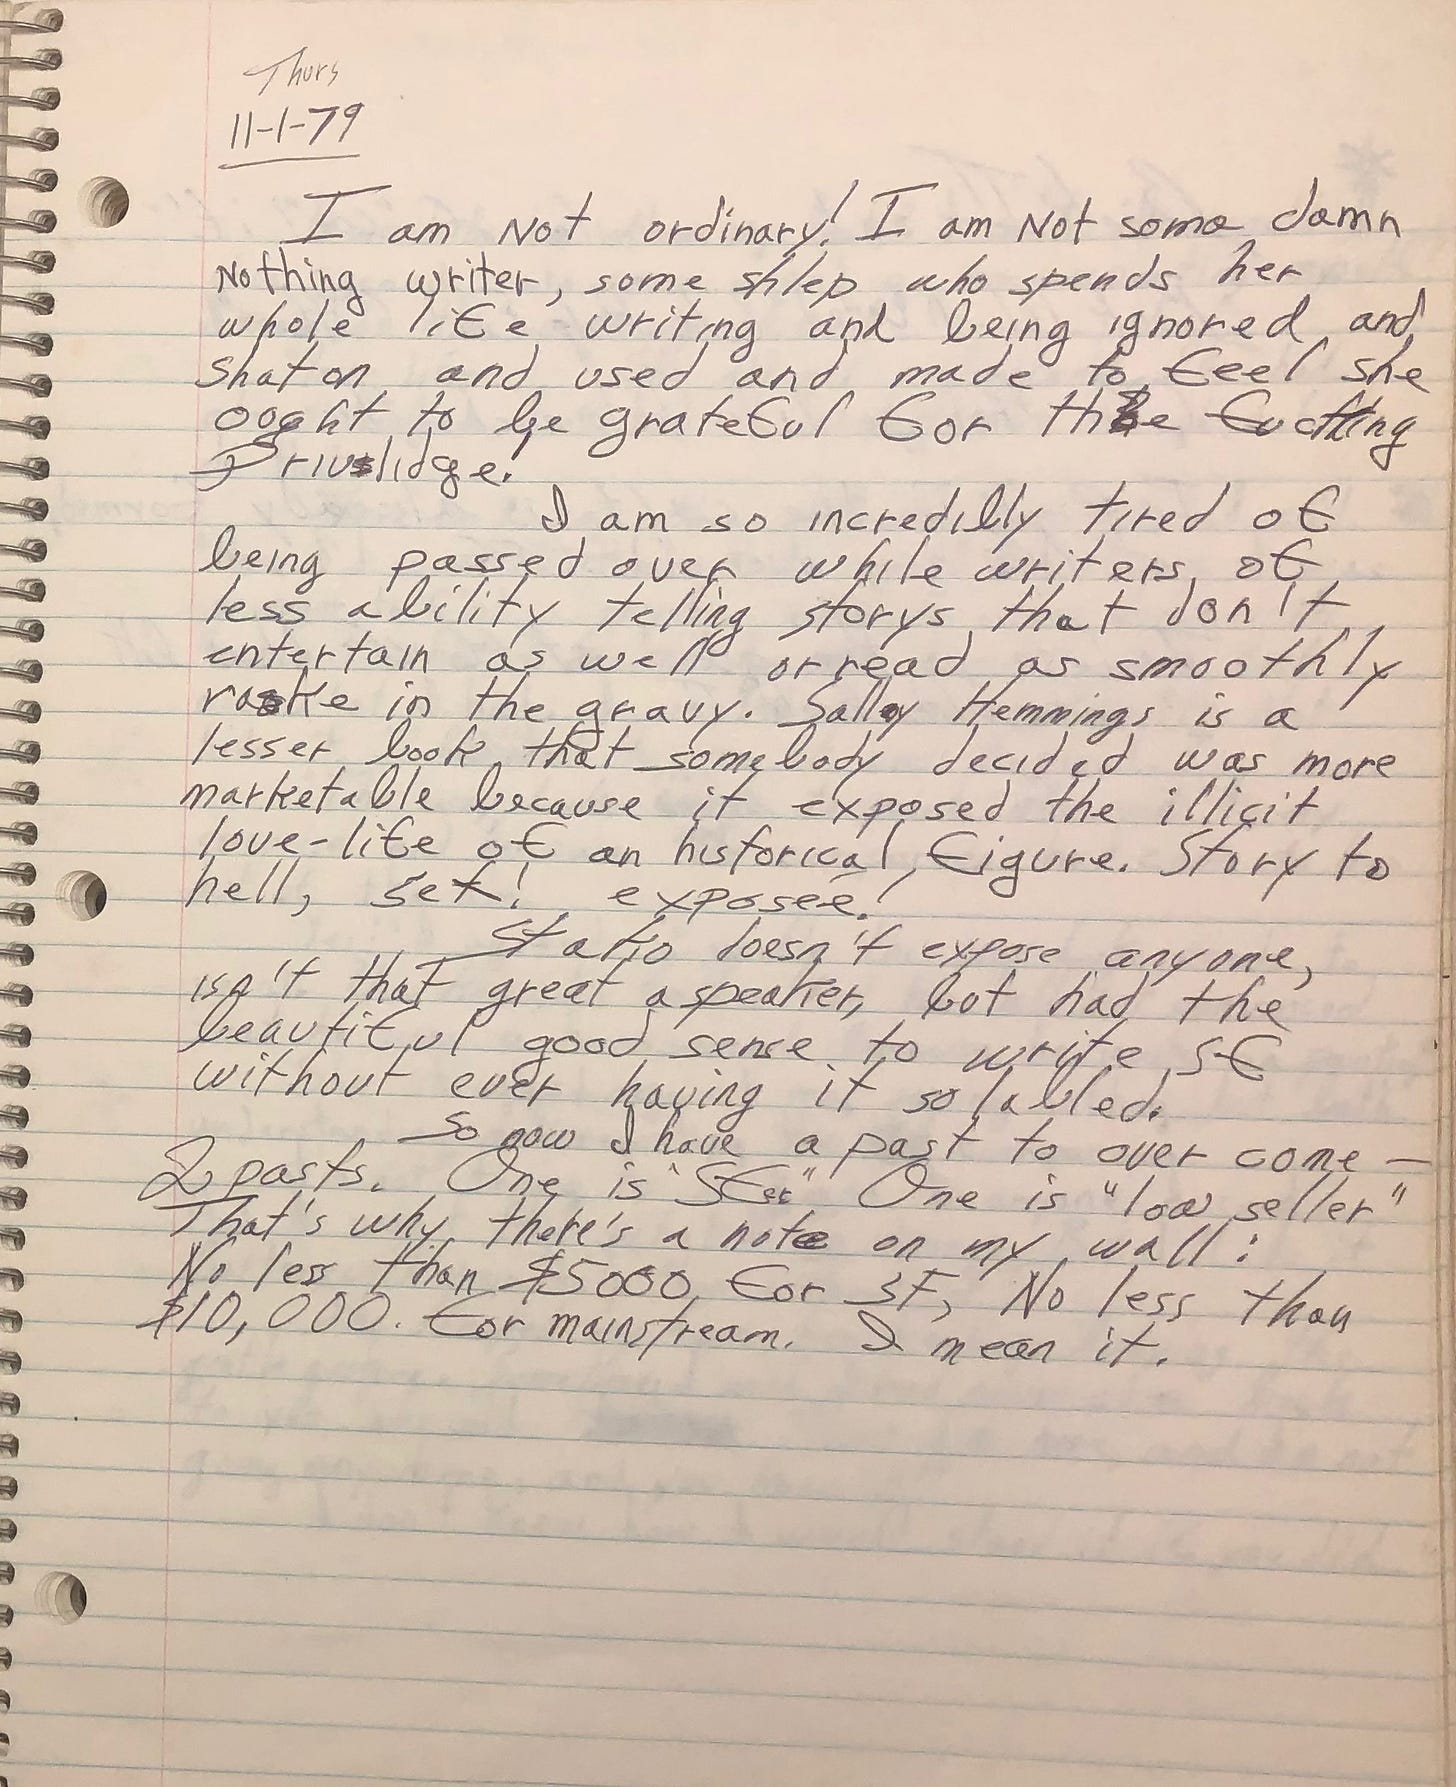 Thurs
11-1-79
I am Not ordinary! I am Not some damn
Nothing writer, some shlep who spends her
whole life writing and being ignored and
shat on and used and made to feel she
ooght to be grateful for the fucking
Privilidge!
I am so incredilly tired of
being passed over while writers of
less ability telling storys that don't
entertain as well or read as smoothly
rake in the gravy. Sally Hemmings is a
lesser book that somebody decided was more
marketable because it exposed the illicit
love-life of an historical figure. Story to
hell, sex! exposeé!
Stako doesn't expose anyone,
isn't that great a speaker, but had the
beautiful good sense to write SF
without ever having it so labled.
So now I have a past to over come —
2 pasts. One is "SFer" One is "low seller"
That's why there's a note on my wall:
No less than $5000 for SF, No less than
$10,000. for mainstream. I mean it.